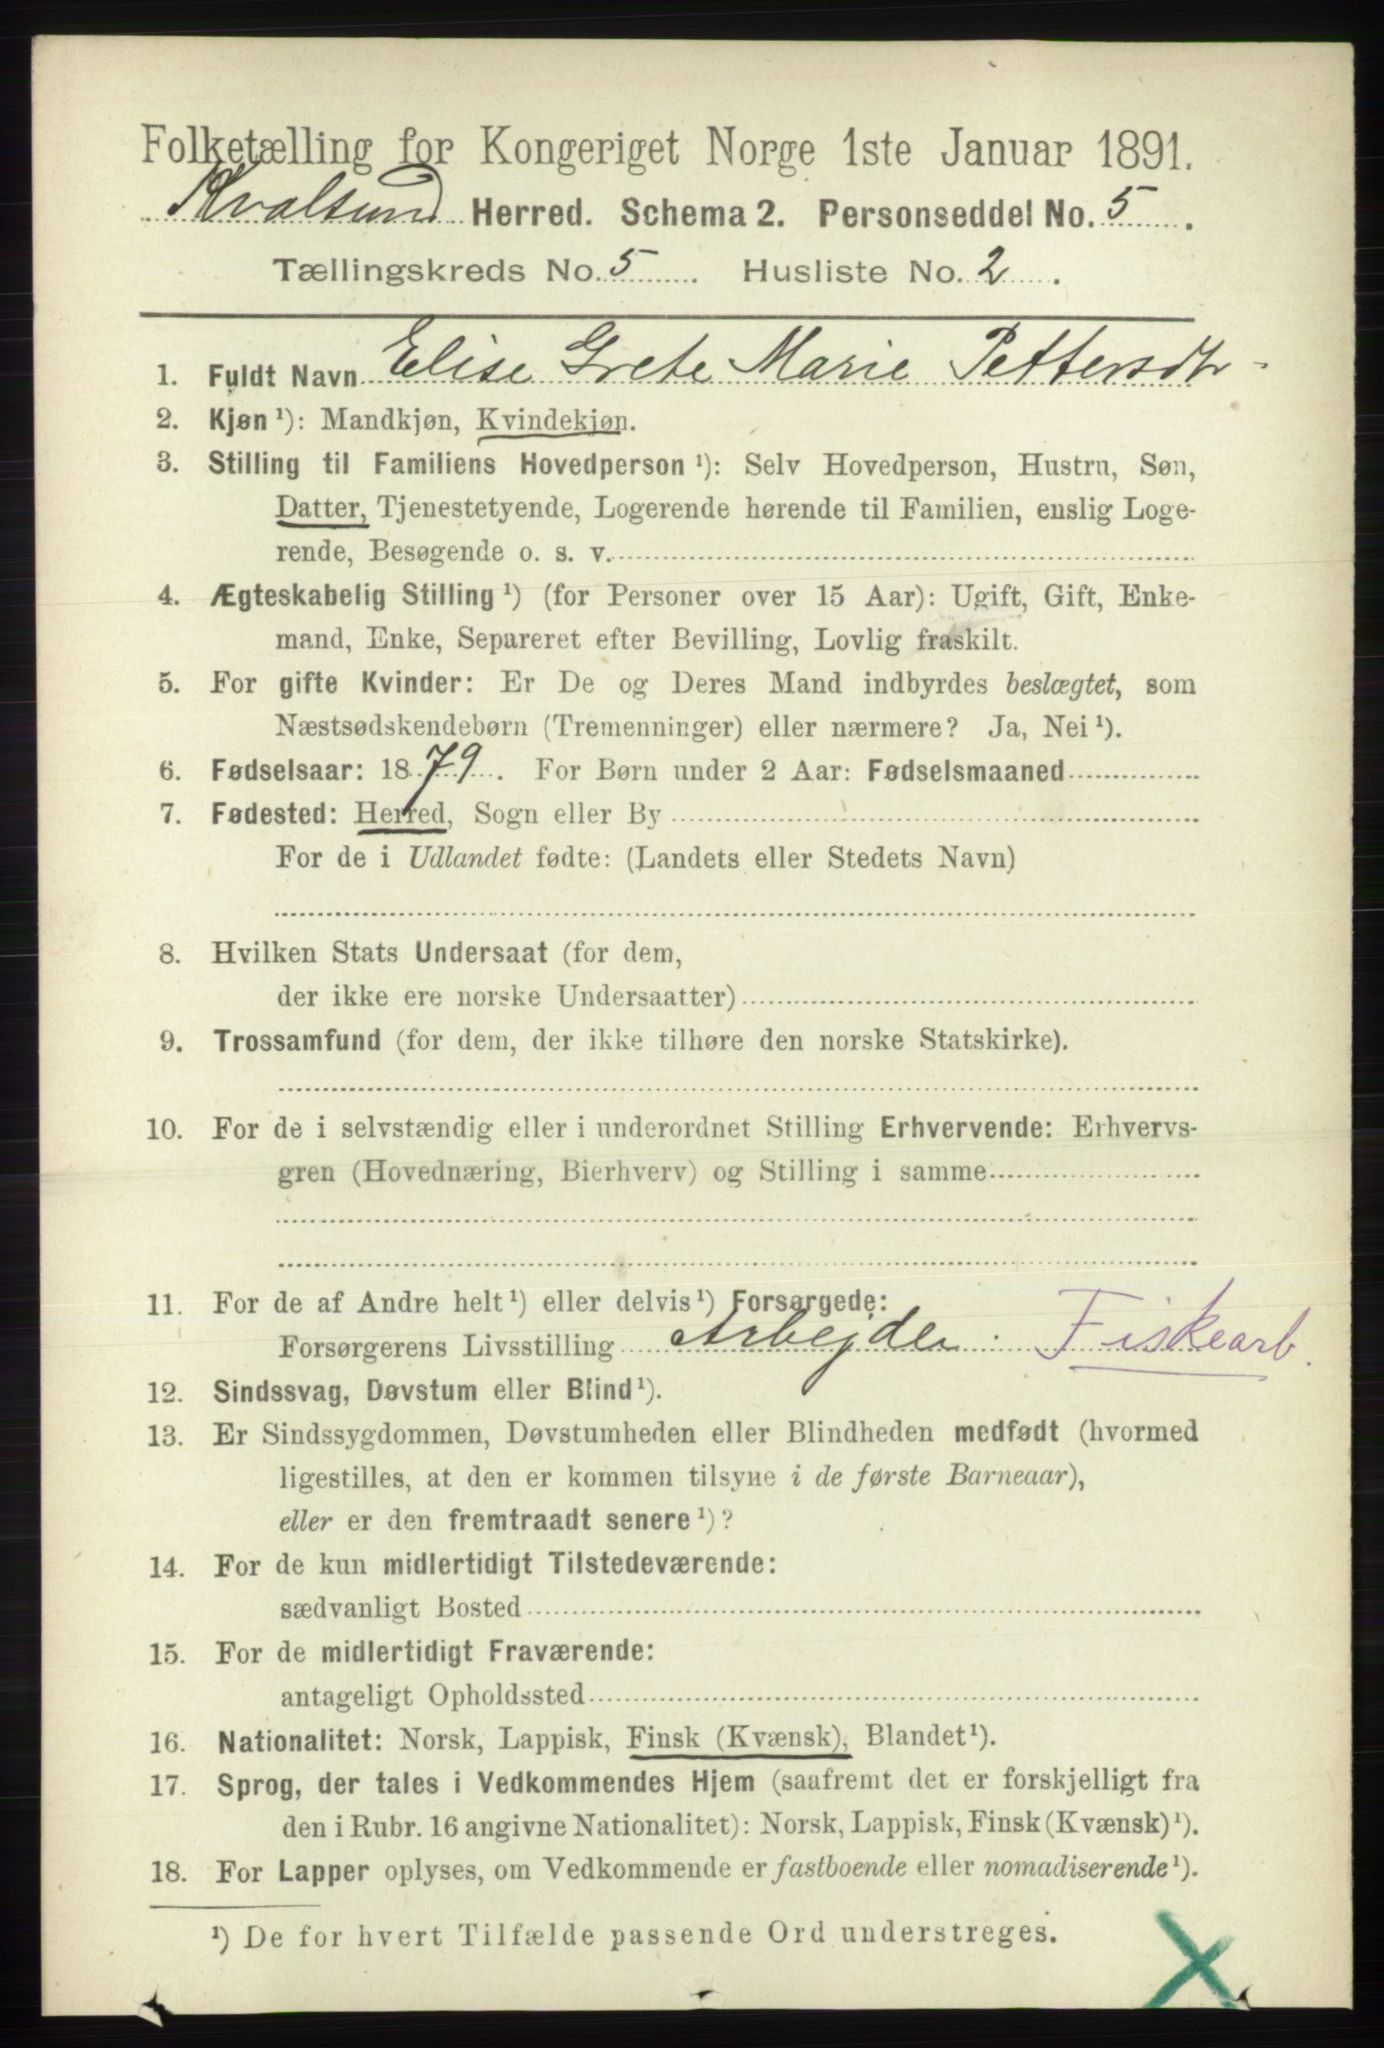 Folketælling for Kongeriget Norge 1ste Januar 1891.
Kvalsund Herred. Schema 2. Personseddel No. 5.
Tællingskreds No. 5. Husliste No. 2.
1. Fuldt Navn Elise Grete Marie Pettersdtr
2. Kjøn ¹): Mandkjøn, Kvindekjøn.
3. Stilling til Familiens Hovedperson ¹): Selv Hovedperson, Hustru, Søn,
Datter, Tjenestetyende, Logerende hørende til Familien, enslig Loge-
rende, Besøgende o. s. v.
4. Ægteskabelig Stilling ¹) (for Personer over 15 Aar): Ugift, Gift, Enke-
mand, Enke, Separeret efter Bevilling, Lovlig fraskilt.
5. For gifte Kvinder: Er De og Deres Mand indbyrdes beslægtet, som
Næstsødskendebørn (Tremenninger) eller nærmere? Ja, Nei ¹).
6. Fødselsaar: 1879. For Børn under 2 Aar: Fødselsmaaned
7. Fødested: Herred, Sogn eller By
For de i Udlandet fødte: (Landets eller Stedets Navn)
8. Hvilken Stats Undersaat (for dem,
der ikke ere norske Undersaatter)
9. Trossamfund (for dem, der ikke tilhøre den norske Statskirke).
10. For de i selvstændig eller i underordnet Stilling Erhvervende: Erhvervs-
gren (Hovednæring, Bierhverv) og Stilling i samme
11. For de af Andre helt ¹) eller delvis ¹) Forsørgede:
Forsørgerens Livsstilling Arbejder. Fiskearb.
12. Sindssvag, Døvstum eller Blind ¹).
13. Er Sindssygdommen, Døvstumheden eller Blindheden medfødt (hvormed
ligestilles, at den er kommen tilsyne i de første Barneaar),
eller er den fremtraadt senere ¹)?
14. For de kun midlertidigt Tilstedeværende:
sædvanligt Bosted
15. For de midlertidigt Fraværende:
antageligt Opholdssted
16. Nationalitet: Norsk, Lappisk, Finsk (Kvænsk), Blandet ¹).
17. Sprog, der tales i Vedkommendes Hjem (saafremt det er forskjelligt fra
den i Rubr. 16 angivne Nationalitet): Norsk, Lappisk, Finsk (Kvænsk) ¹).
18. For Lapper oplyses, om Vedkommende er fastboende eller nomadiserende ¹).
¹) De for hvert Tilfælde passende Ord understreges.